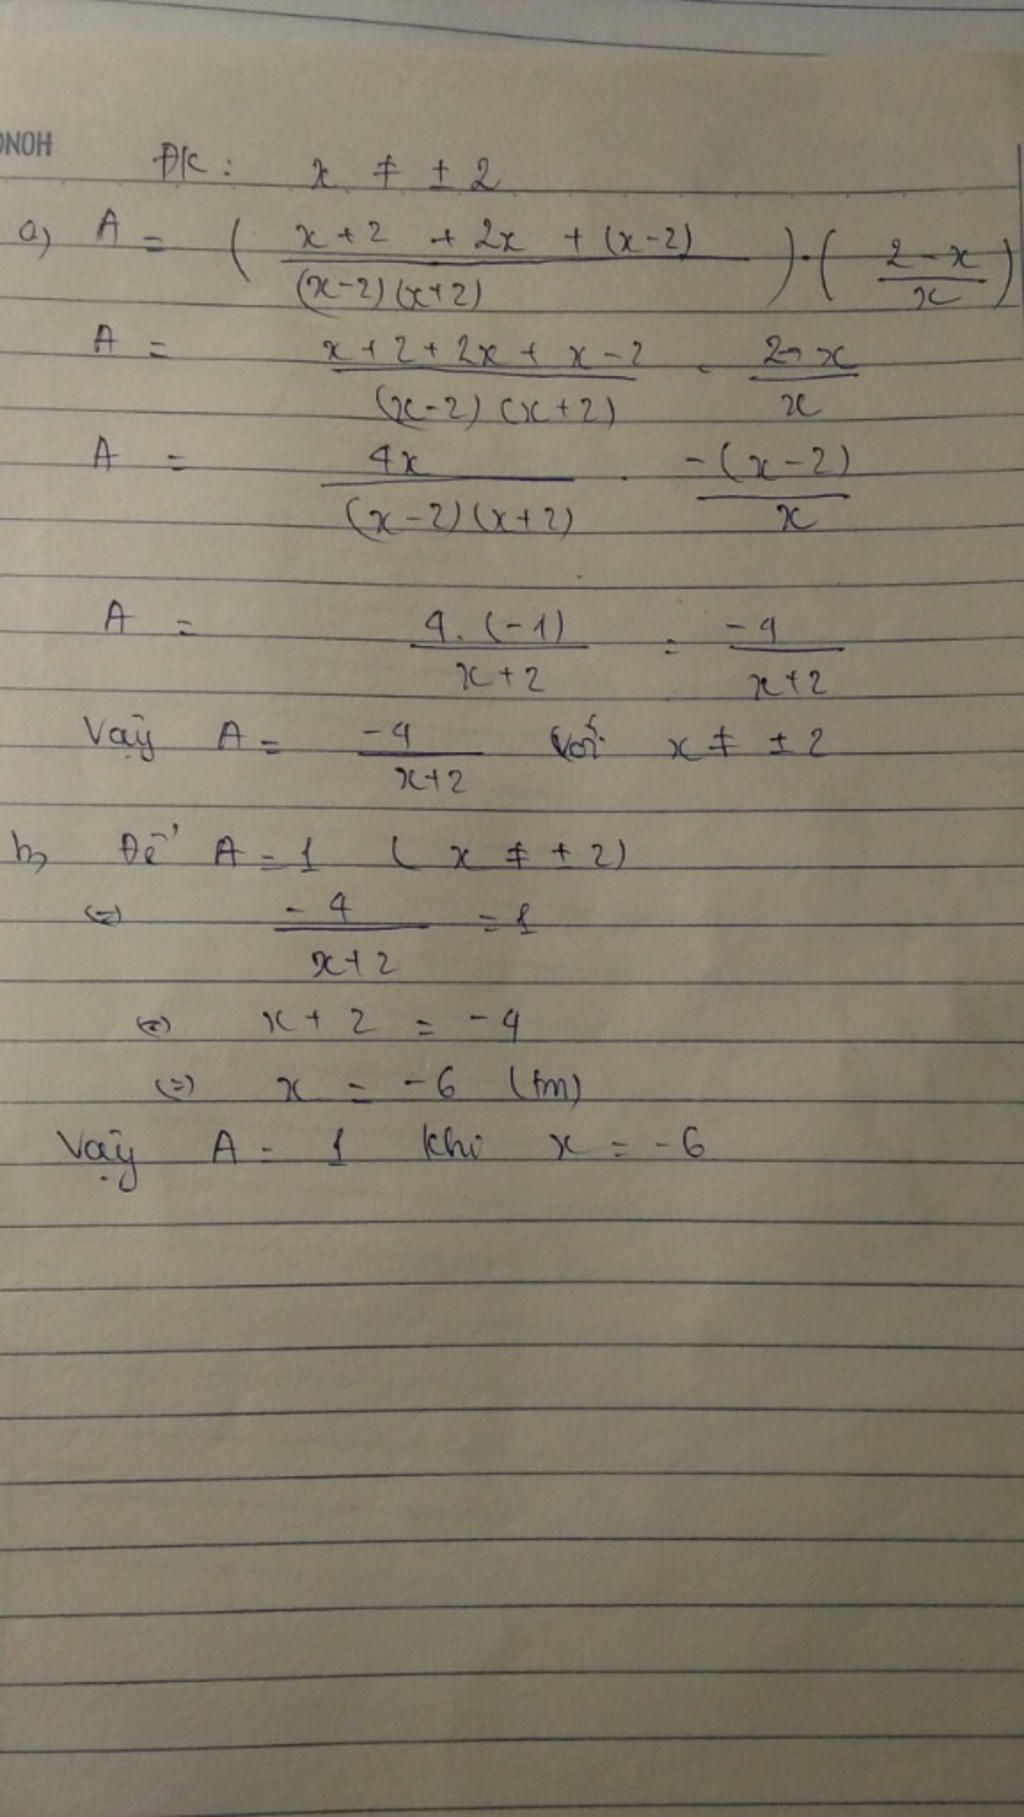 ONOH
ĐK: x ≠ ± 2
a) A = ( x+2 + 2x + (x-2) / (x-2)(x+2) ) . ( 2-x / x )
A = x+2+2x+x-2 / (x-2)(x+2) . 2-x / x
A = 4x / (x-2)(x+2) . -(x-2) / x
A = 4.(-1) / x+2 = -4 / x+2
Vậy A = -4 / x+2 với x ≠ ± 2
b) Để A = 1 ( x ≠ ± 2)
(=) -4 / x+2 = 1
(=) x + 2 = -4
(=) x = -6 (tm)
Vậy A = 1 khi x = -6